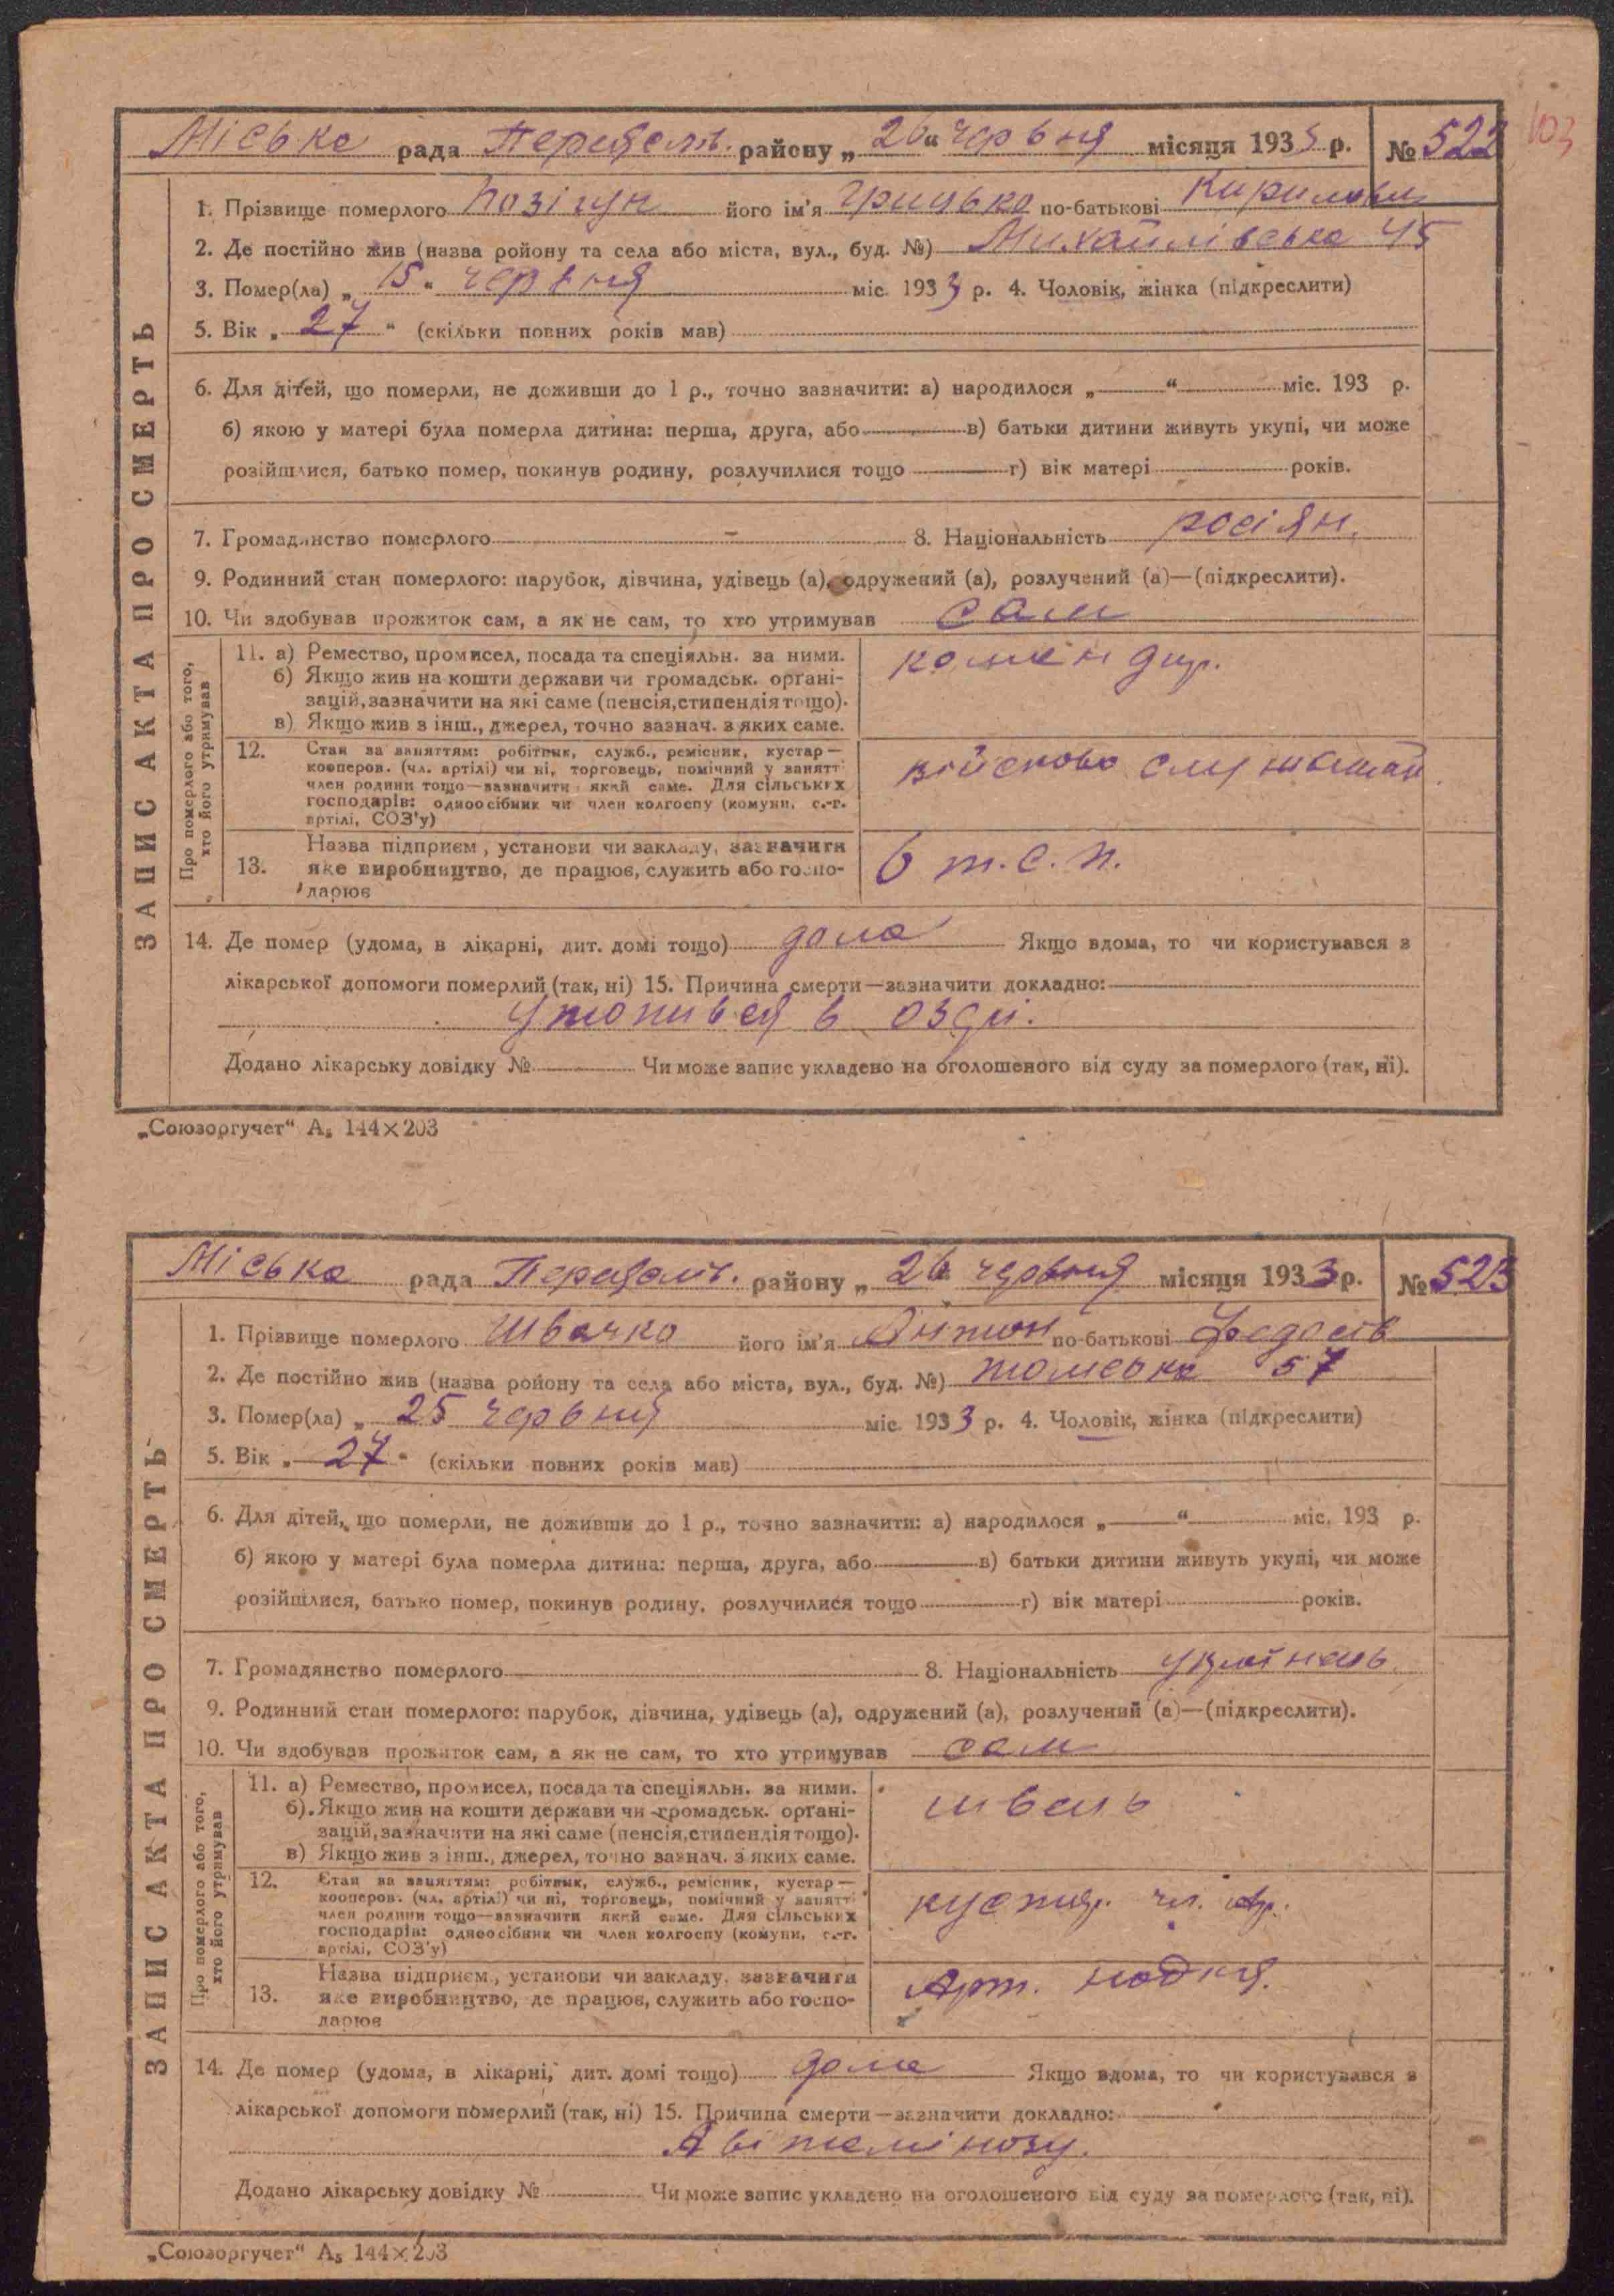 103
Міська рада Переяслв. району „26“ червня місяця 1933 р. № 522
ЗАПИС АКТА ПРО СМЕРТЬ
1. Прізвище померлого Позігун його ім'я Грицько по-батькові Кирилови
2. Де постійно жив (назва ройону та села або міста, вул., буд. №) Михайлівська 45
3. Помер(ла) „15“ червня міс. 1933 р. 4. Чоловік, жінка (підкреслити)
5. Вік „27“ (скільки повних років мав)
6. Для дітей, що померли, не доживши до 1 р., точно зазначити: а) народилося „—“ міс. 193 р.
б) якою у матері була померла дитина: перша, друга, або — в) батьки дитини живуть укупі, чи може
розійшлися, батько помер, покинув родину, розлучилися тощо — г) вік матері років.
7. Громадянство померлого – 8. Національність росіян.
9. Родинний стан померлого: парубок, дівчина, удівець (а), одружений (а), розлучений (а)—(підкреслити).
10. Чи здобував прожиток сам, а як не сам, то хто утримував сам
Про померлого або того, хто його утримував
11. а) Ремество, промисел, посада та спеціяльн. за ними. командир.
б) Якщо жив на кошти держави чи громадськ. орґані-
зацій, зазначити на які саме (пенсія, стипендія тощо).
в) Якщо жив з інш., джерел, точно зазнач. з яких саме.
12. Стан за заняттям: робітник, служб., ремісник, кустар—
кооперов. (чл. артілі) чи ні, торговець, помічний у занятті
член родини тощо—зазначити який саме. Для сільських
господарів: одноосібник чи член колгоспу (комуни, с.-г.
артілі, СОЗ'у)
військово служащий.
13. Назва підприєм., установи чи закладу, зазначити
яке виробництво, де працює, служить або госпо-
дарює
6 т.с.п.
14. Де помер (удома, в лікарні, дит. домі тощо) дома Якщо вдома, то чи користувався з
лікарської допомоги померлий (так, ні) 15. Причина смерти—зазначити докладно:
утопився в
Додано лікарську довідку № — Чи може запис укладено на оголошеного від суду за померлого (так, ні).
„Союзоргучет“ А₅ 144×203
Міська рада Переяслв. району „26 червня місяця 1933 р. № 523
ЗАПИС АКТА ПРО СМЕРТЬ
1. Прізвище померлого Швачко його ім'я Антон по-батькові Федосів
2. Де постійно жив (назва ройону та села або міста, вул., буд. №) 57
3. Помер(ла) „25 червня міс. 1933 р. 4. Чоловік, жінка (підкреслити)
5. Вік „27“ (скільки повних років мав)
6. Для дітей, що померли, не доживши до 1 р., точно зазначити: а) народилося „—“ міс. 193 р.
б) якою у матері була померла дитина: перша, друга, або — в) батьки дитини живуть укупі, чи може
розійшлися, батько помер, покинув родину, розлучилися тощо — г) вік матері років.
7. Громадянство померлого 8. Національність українець.
9. Родинний стан померлого: парубок, дівчина, удівець (а), одружений (а), розлучений (а)—(підкреслити).
10. Чи здобував прожиток сам, а як не сам, то хто утримував сам
Про померлого або того, хто його утримував
11. а) Ремество, промисел, посада та спеціяльн. за ними. швець
б) Якщо жив на кошти держави чи громадськ. орґані-
зацій, зазначити на які саме (пенсія, стипендія тощо).
в) Якщо жив з інш., джерел, точно зазнач. з яких саме.
12. Стан за заняттям: робітник, служб., ремісник, кустар—
кооперов. (чл. артілі) чи ні, торговець, помічний у занятті
член родини тощо—зазначити який саме. Для сільських
господарів: одноосібник чи член колгоспу (комуни, с.-г.
артілі, СОЗ'у)
кустар. чл. ар.
13. Назва підприєм., установи чи закладу, зазначити
яке виробництво, де працює, служить або госпо-
дарює
Арт.
14. Де помер (удома, в лікарні, дит. домі тощо) дома Якщо вдома, то чи користувався з
лікарської допомоги померлий (так, ні) 15. Причина смерти—зазначити докладно:
Авітамінозу.
Додано лікарську довідку № — Чи може запис укладено на оголошеного від суду за померлого (так, ні).
„Союзоргучет“ А₅ 144×203